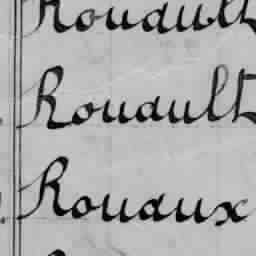 Rouault
Rouault
Rouaux